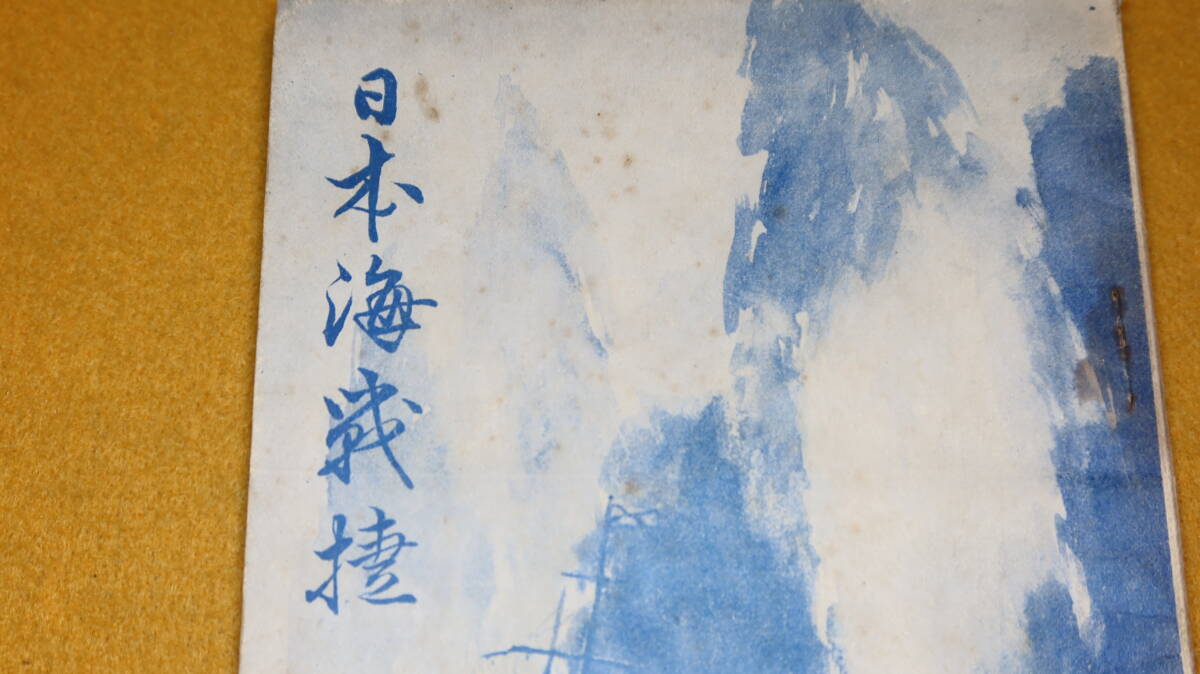 日本海戰捷